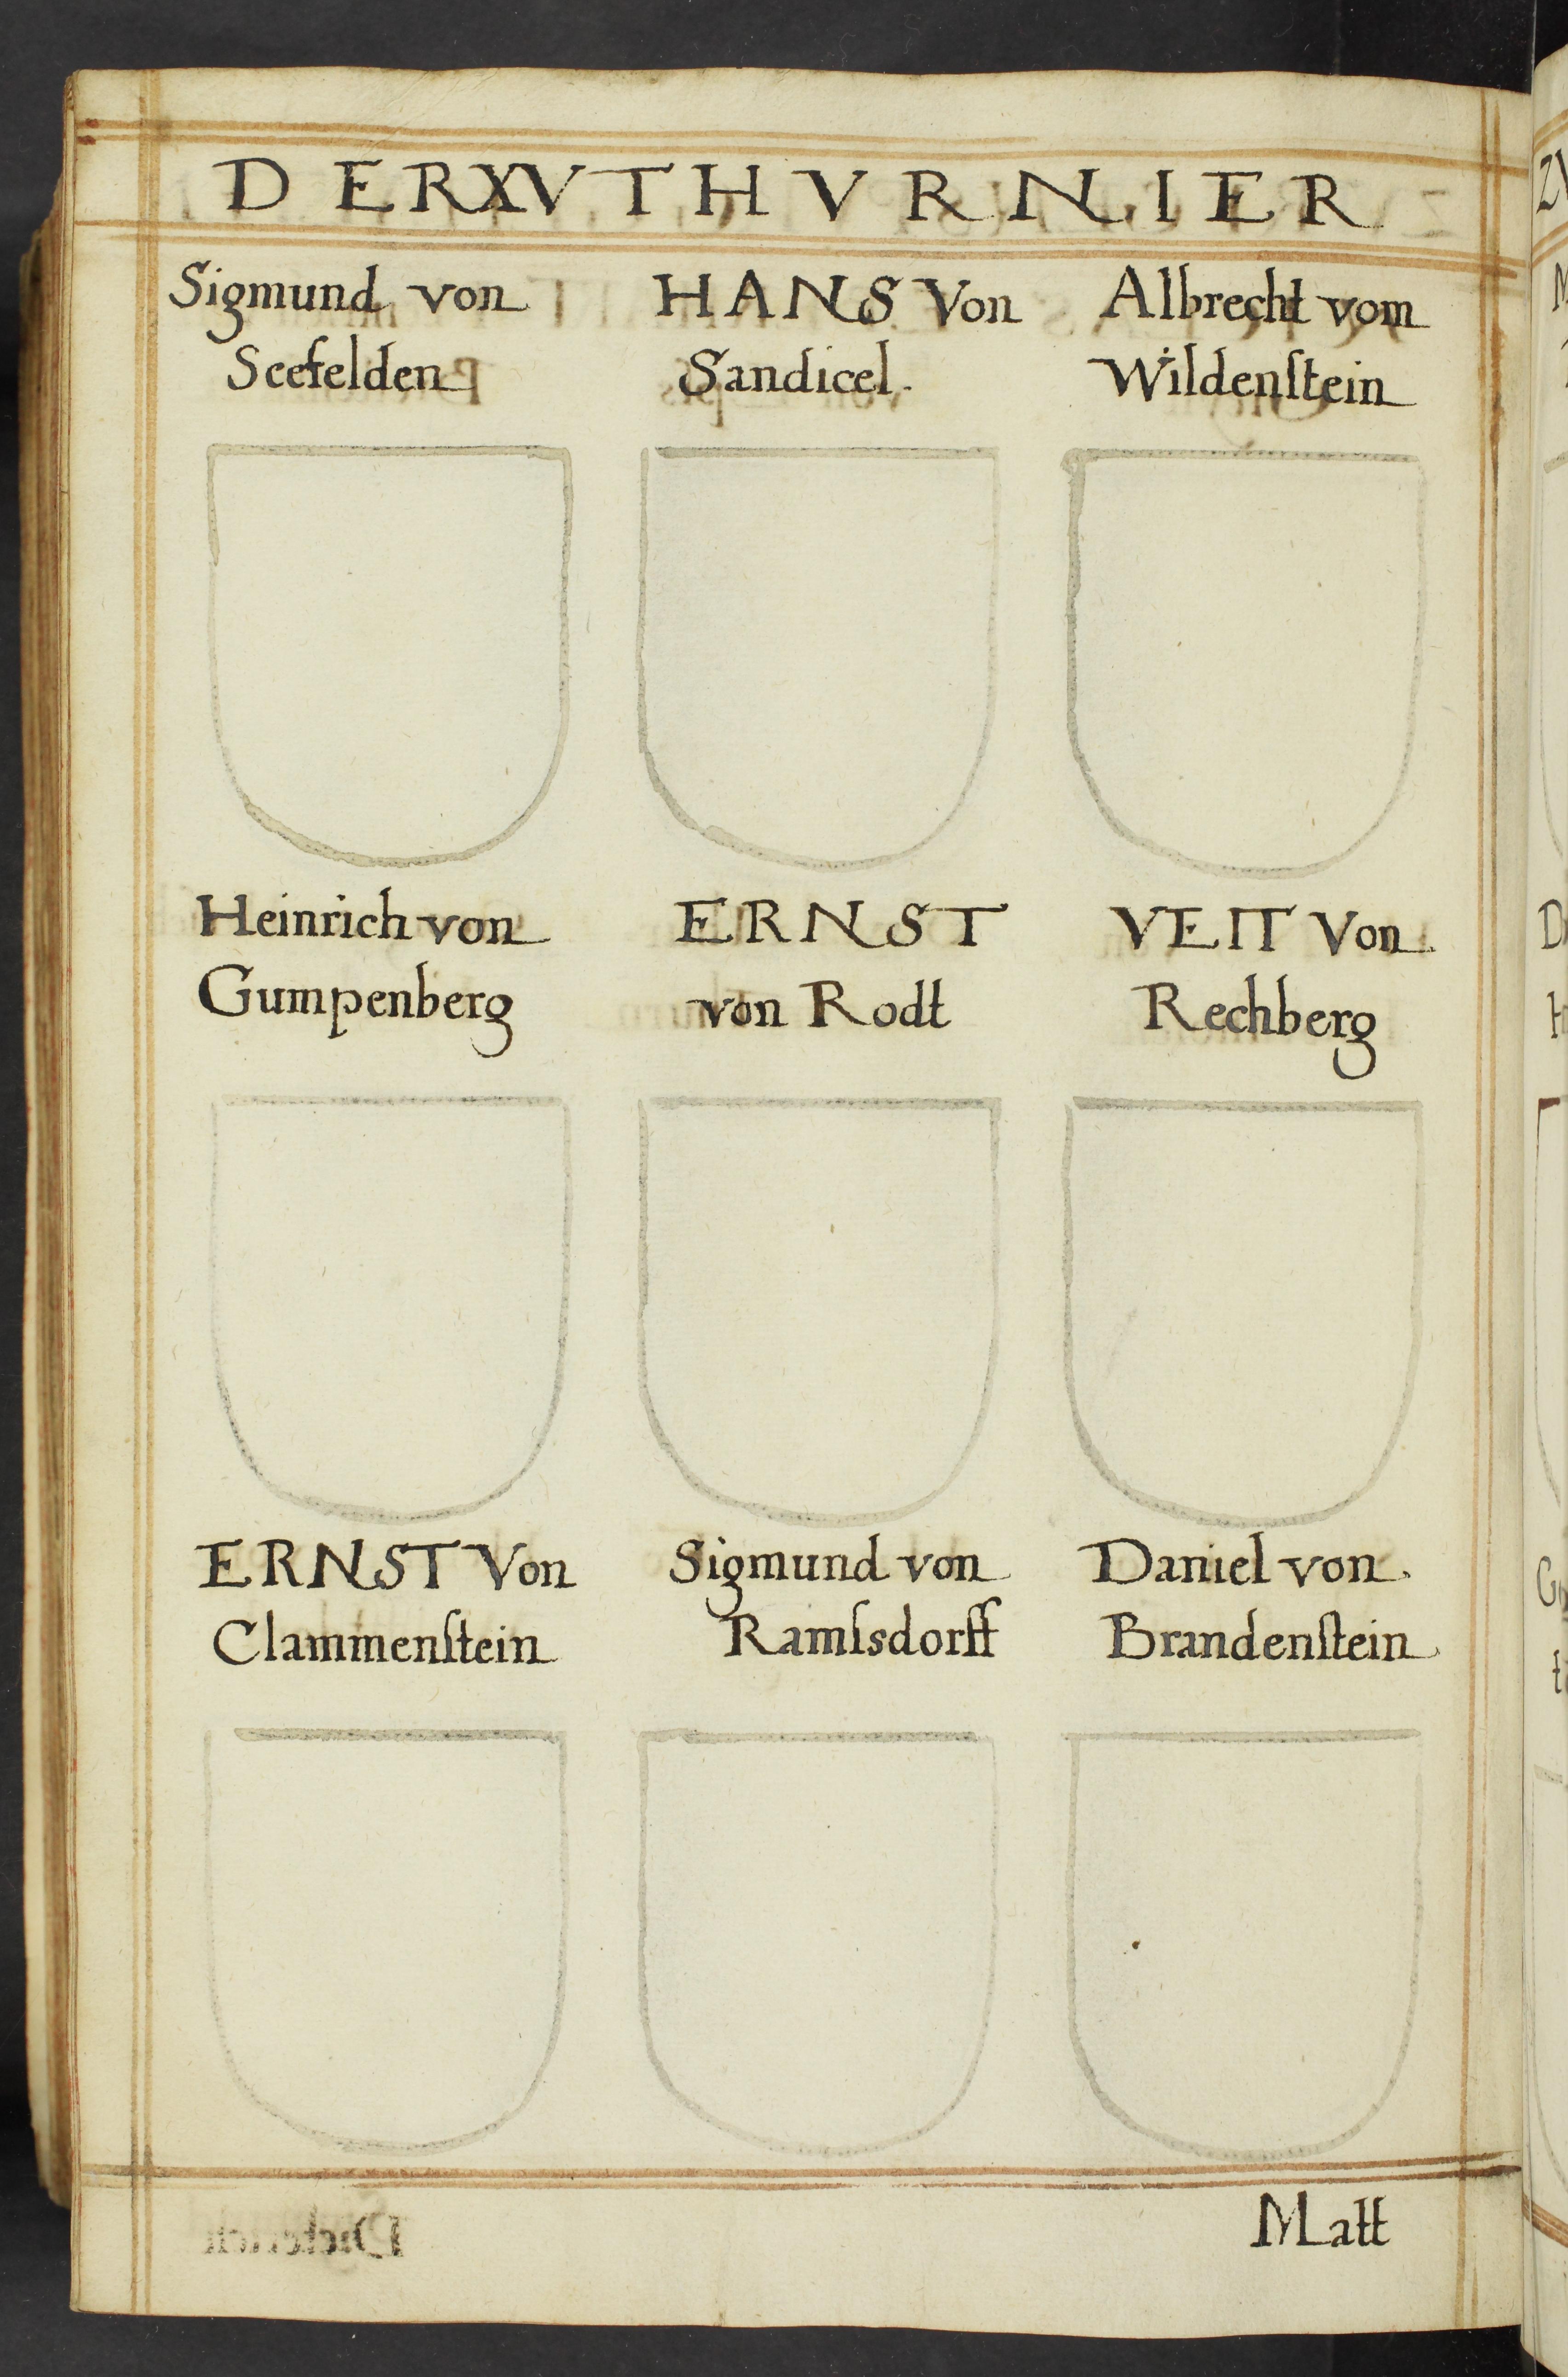 DER XV THVRNIER
Sigmund von
Seefelden
HANS Von
Sandicel.
Albrecht vom
Wildenſtein
Heinrich von
Gumpenberg
ERNST
von Rodt
VEIT Von
Rechberg
ERNST Von
Clammenſtein
Sigmund von
Ramſsdorff
Daniel von
Brandenſtein
Matt